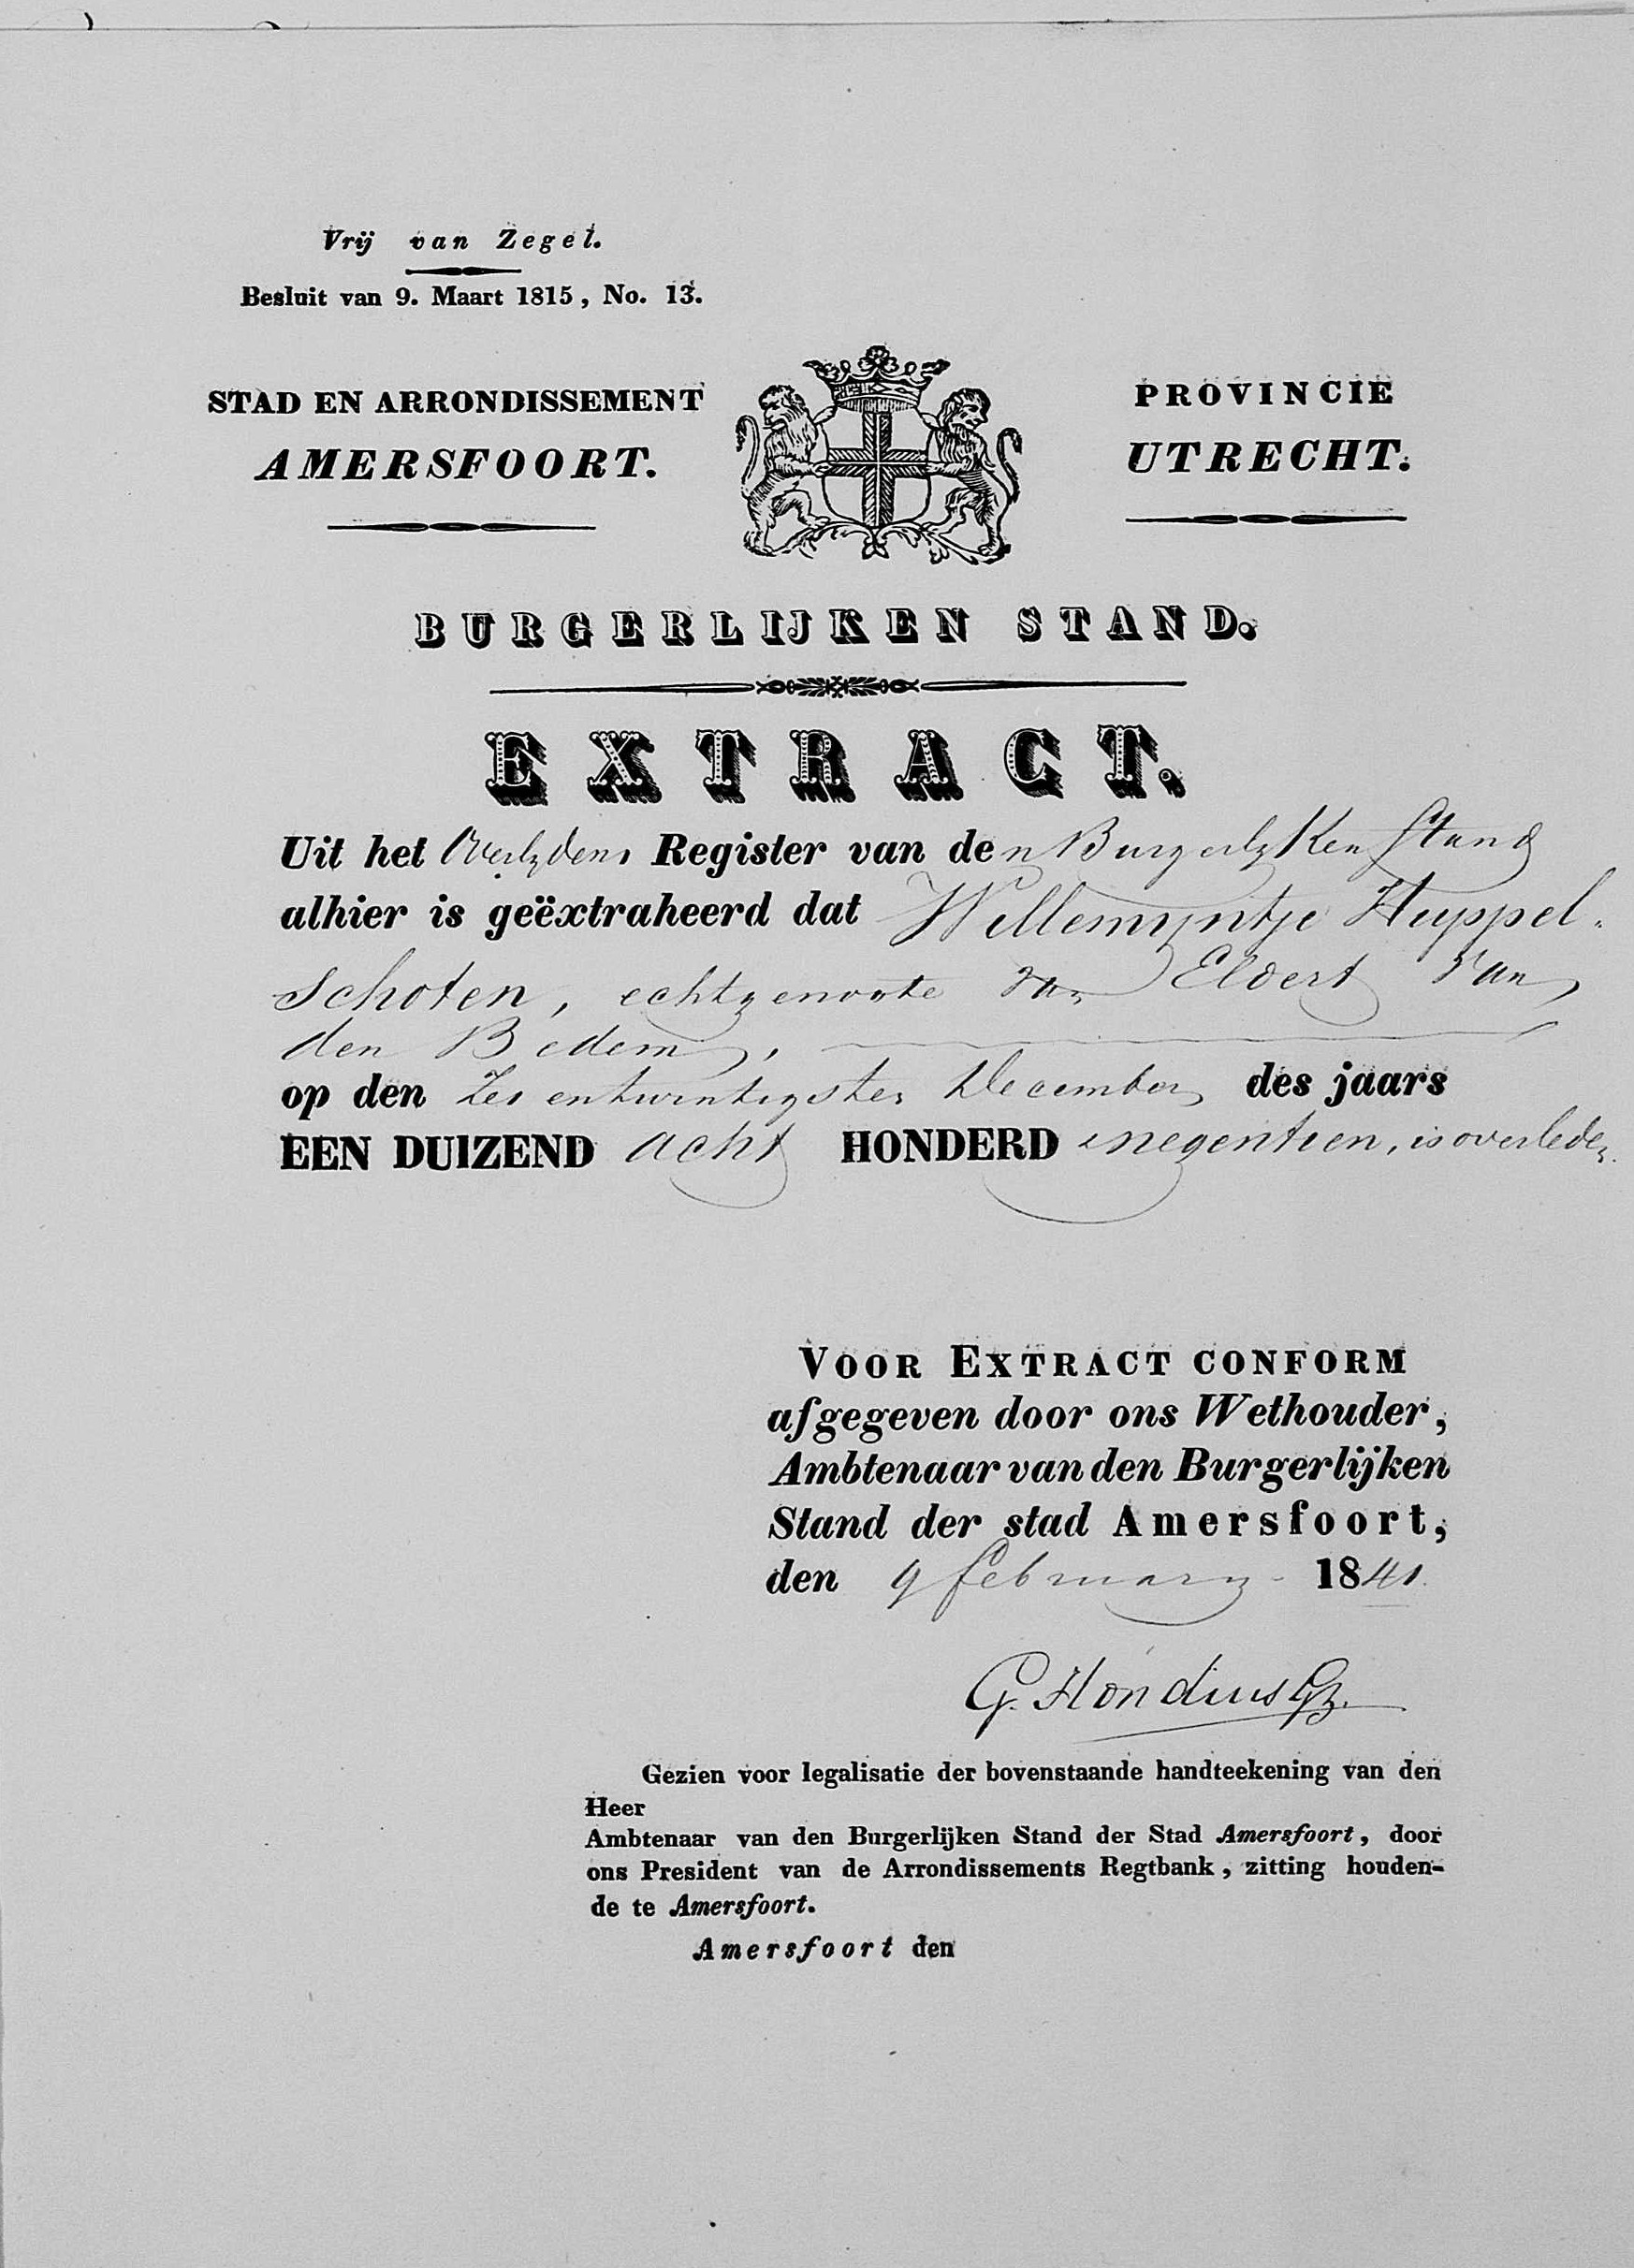 Vrij van Zegel.
Besluit van 9. Maart 1815, No. 13.
STAD EN ARRONDISSEMENT
AMERSFOORT.
PROVINCIE
UTRECHT.
BURGERLIJKEN STAND.
EXTRACT.
Uit het Overlydens Register van den Burgerlyken Stand
alhier is geëxtraheerd dat Willemyntje Huppel-
schoten, echtgenoote van Eldert van
den Bedem,
op den Zes entwintigsten December des jaars
EEN DUIZEND acht HONDERD negentien, is overleden.
VOOR EXTRACT CONFORM
afgegeven door ons Wethouder,
Ambtenaar van den Burgerlijken
Stand der stad Amersfoort,
den 9 february 1841.
G. Hondius Gz.
Gezien voor legalisatie der bovenstaande handteekening van den
Heer
Ambtenaar van den Burgerlijken Stand der Stad Amersfoort, door
ons President van de Arrondissements Regtbank, zitting houden-
de te Amersfoort.
Amersfoort den